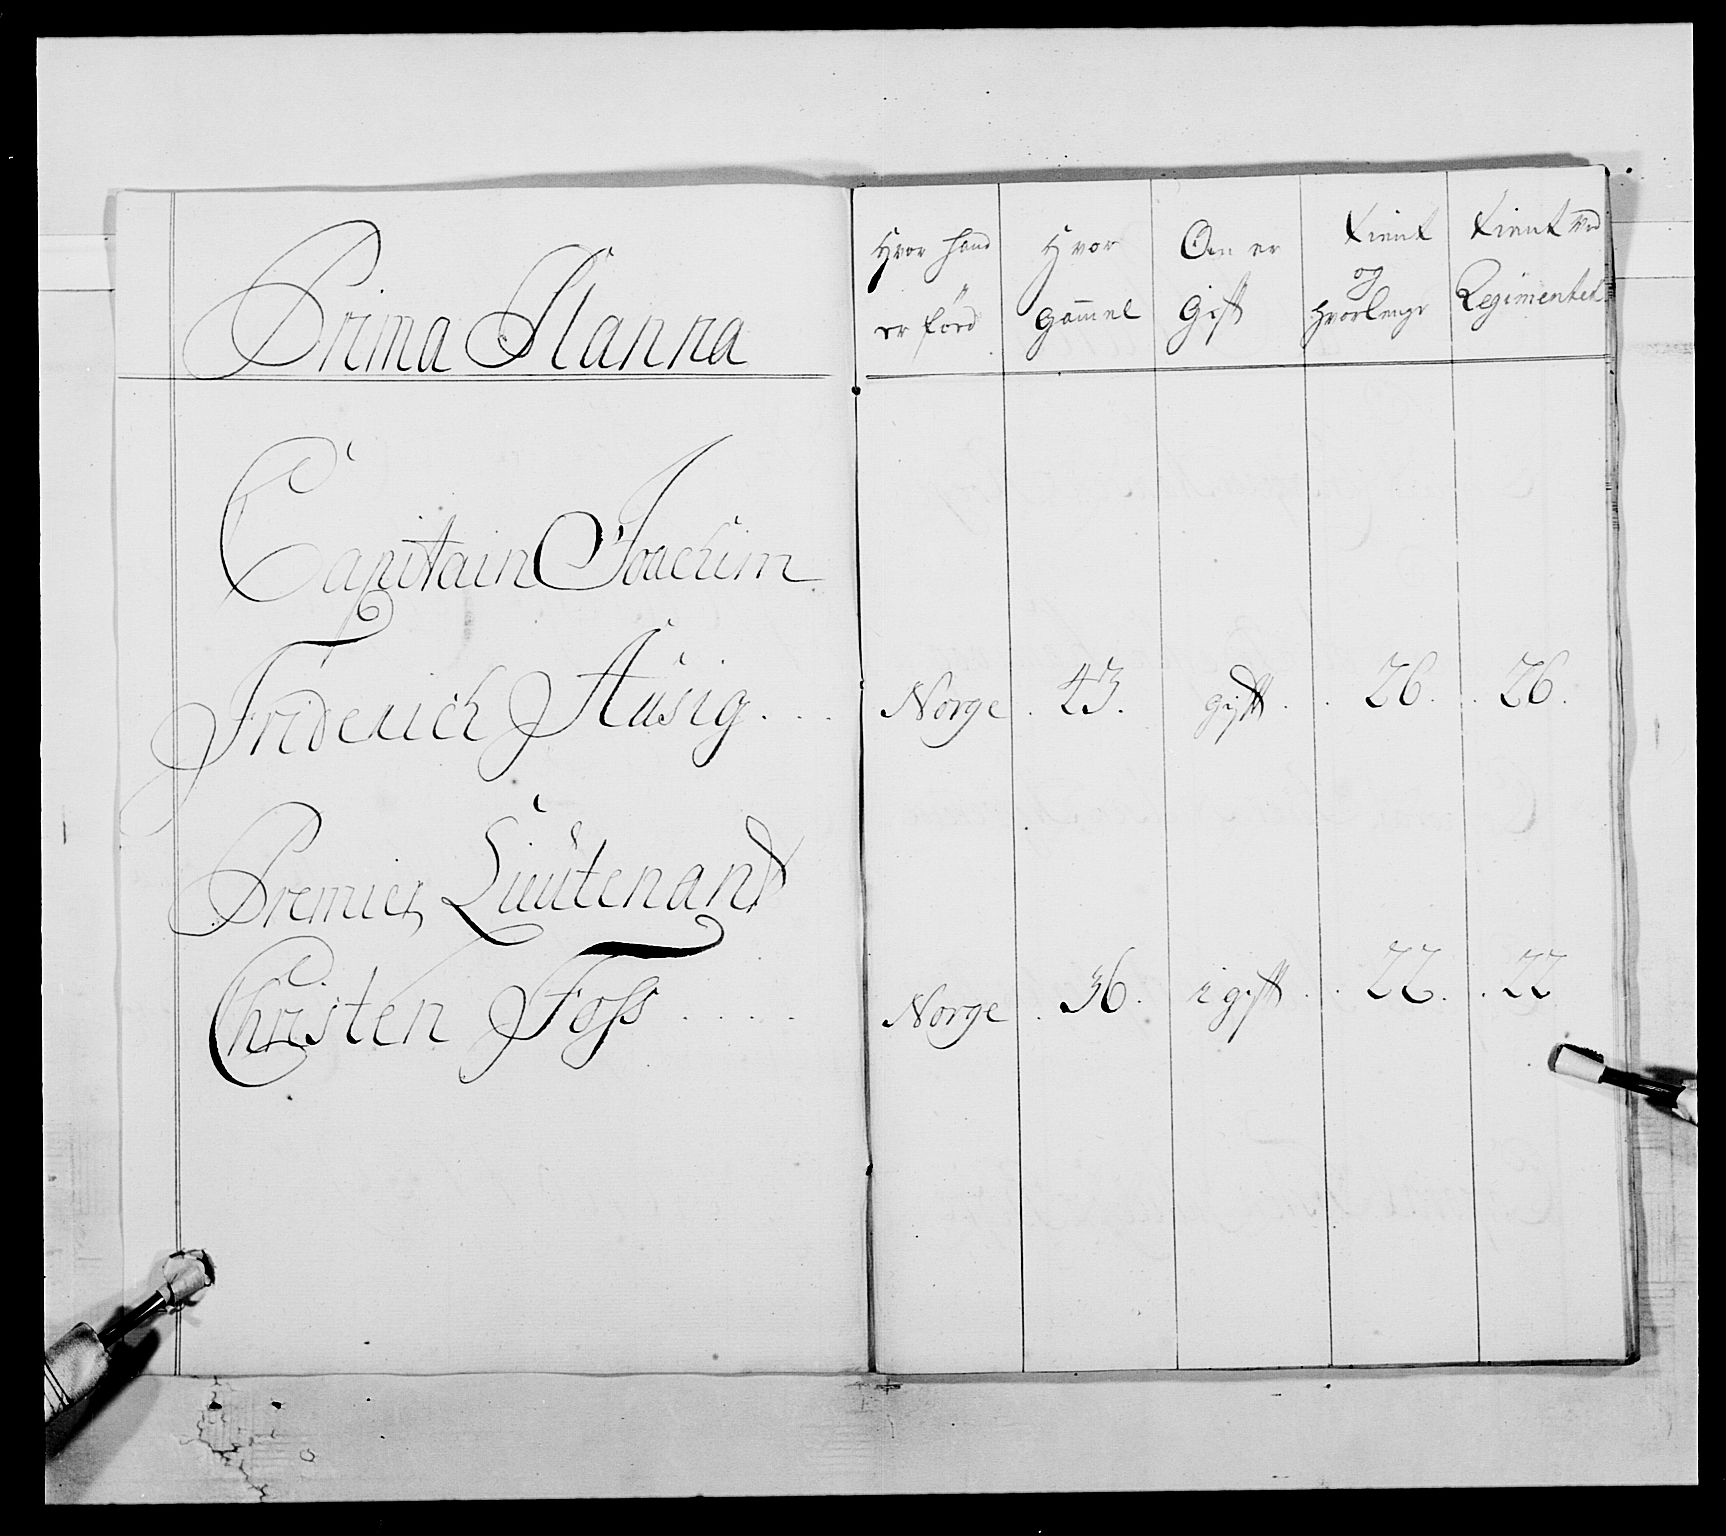 Prima Plana
Hvor hand er förd
Hvor gammel
Om er Gift
Tient og hvorlenge
Tient ved Regimentet
Capitain Joachim
Friderich Hüsig . . . Norge . 43. gift . . 26. . 26.
Premier Lieütenant
Christen Foss . . . . Norge . 36. igift . . 22. . 22